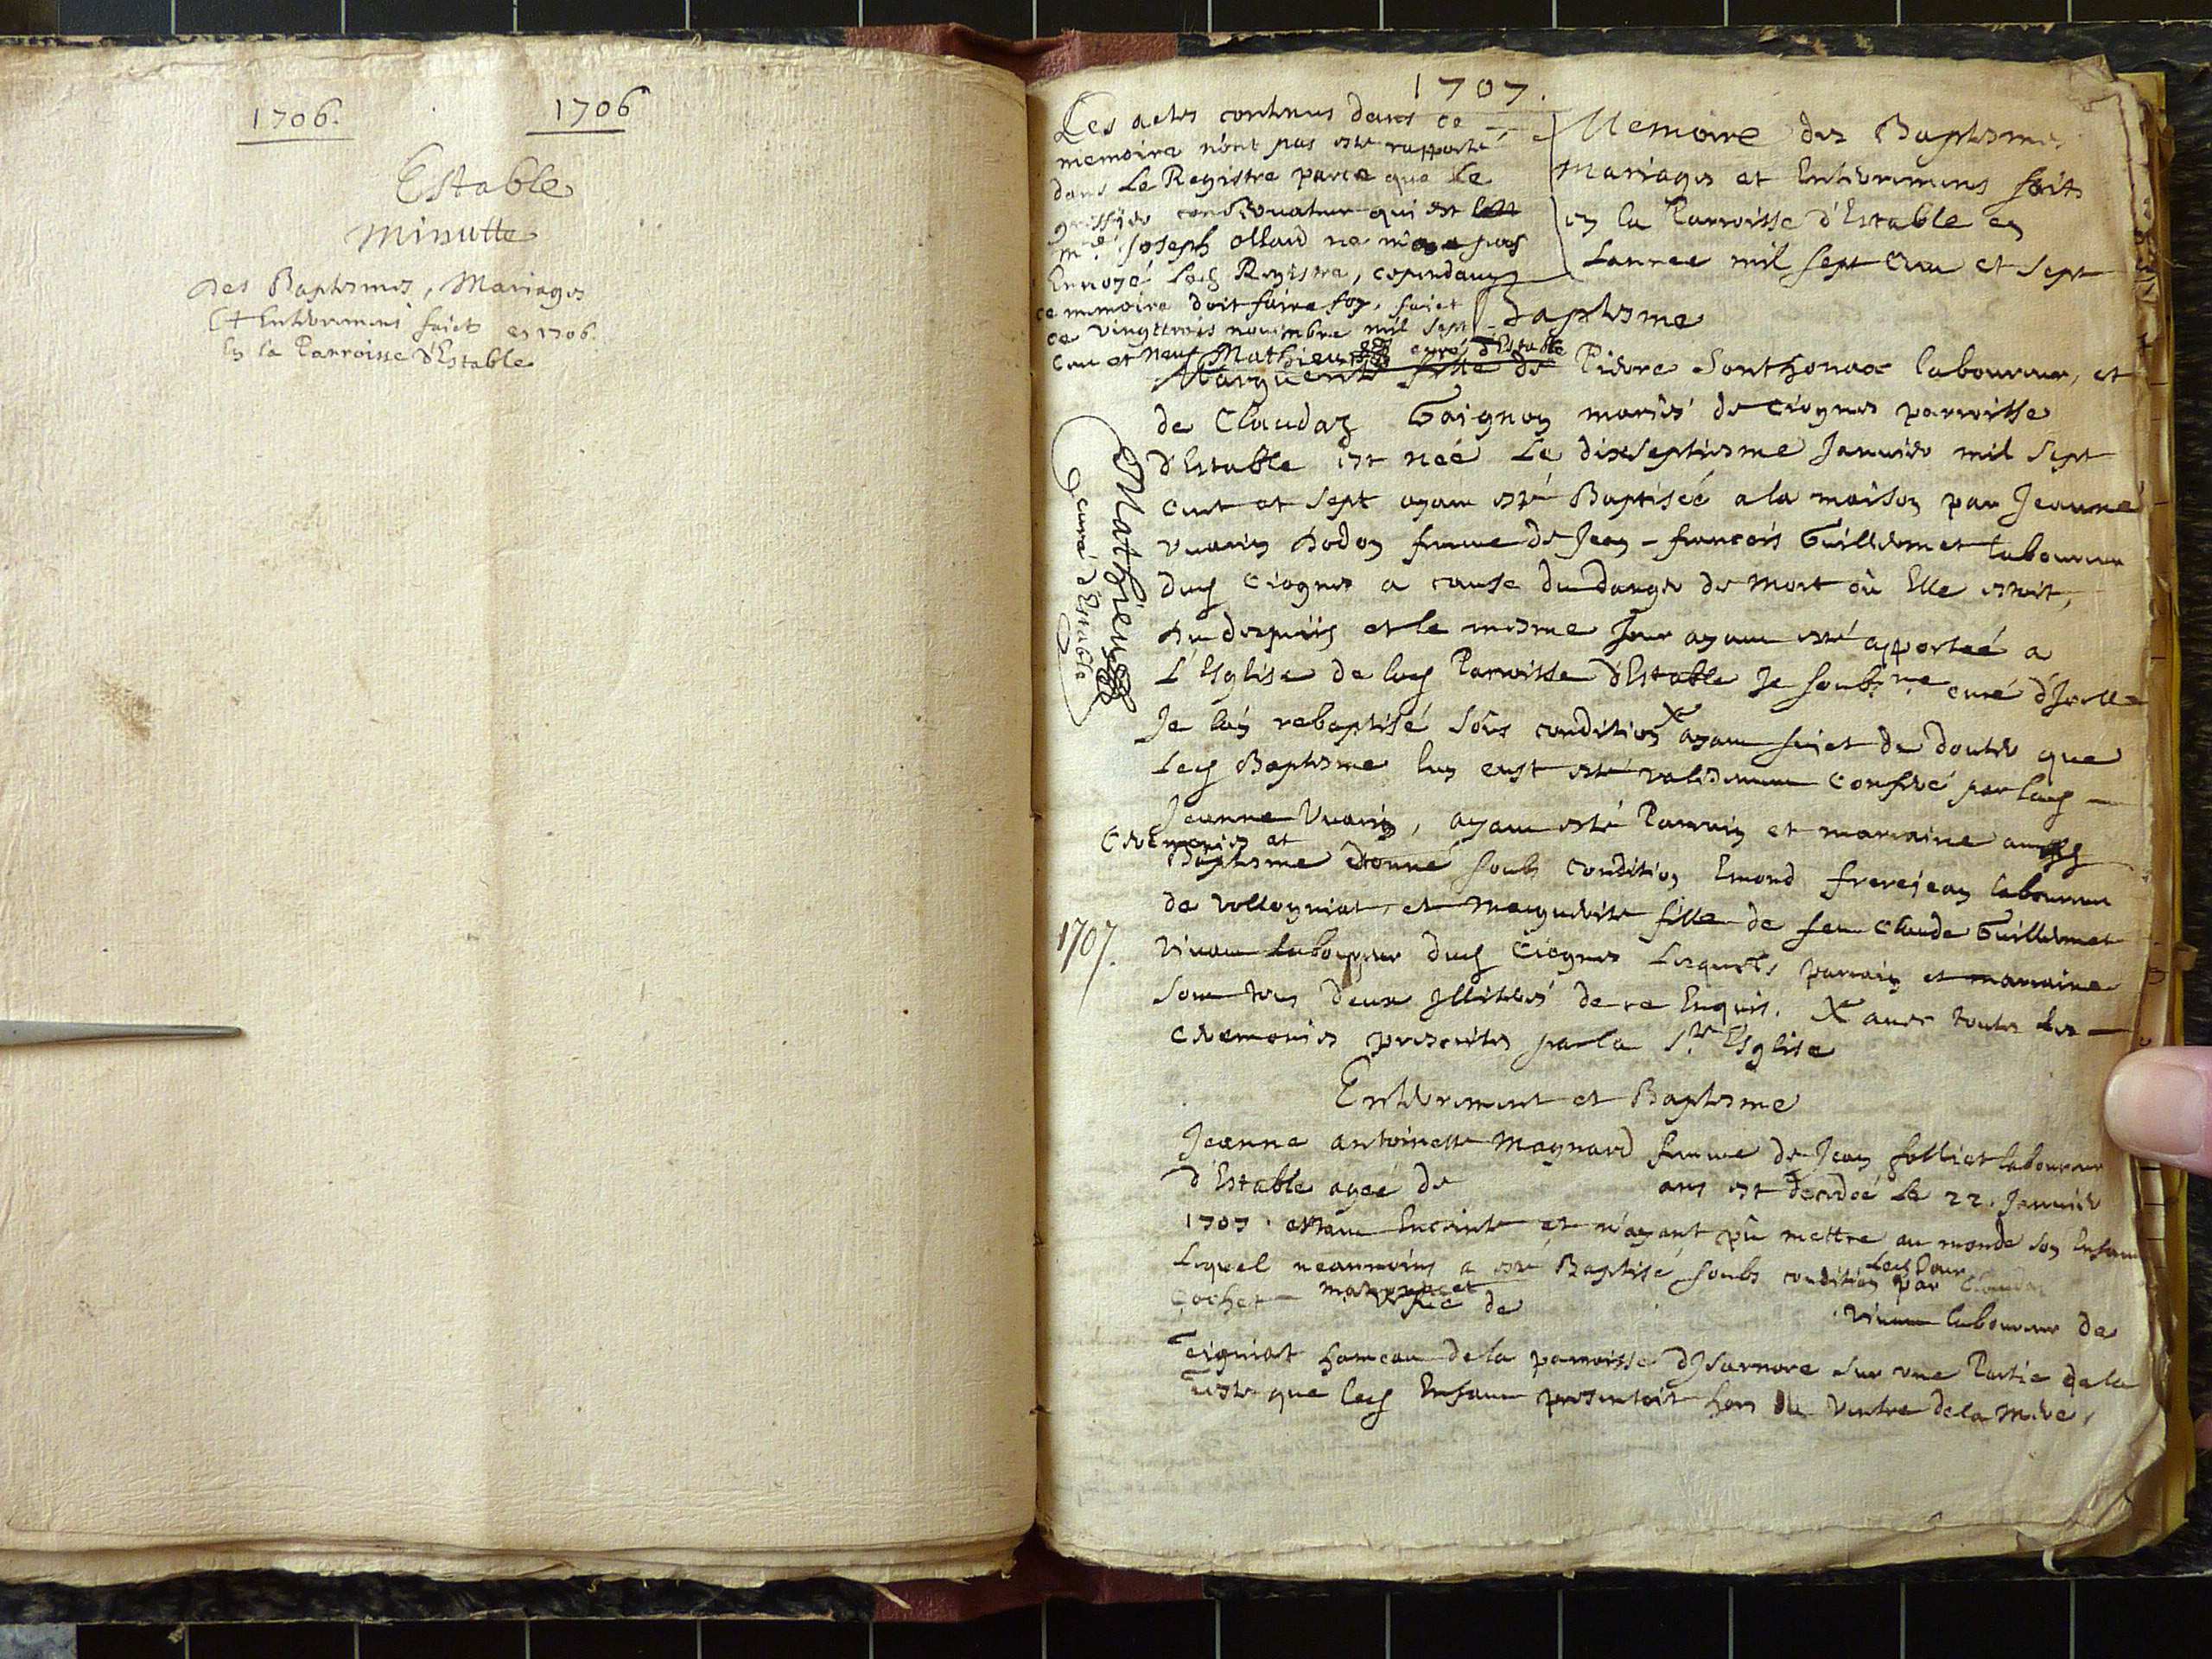 1706. 1706
Estable
Minutte
des Baptesmes, Mariages
Et Enterremens faicts en 1706.
En la Parroisse d'Estable
1707.
Les actes contenus dans ce
memoire n'ont pas esté rapporté
dans Le Registre parce que Le
greffier conservateur qui est
mre Joseph ollard ne m'a pas
Envoyé Led Registre, cependant
ce memoire doit faire foy, faict
ce vingttrois novembre mil sept
Cent et neuf Mathieu curé d'Estable
Memoire des Baptesmes
Mariages et Enterremens faits
en la Parroisse d'Estable en
Lannee mil sept Cent et sept
Baptesme
Marguerite fille de Pierre Sonthonax laboureur, et
de Claudaz Gaignon mariés de Ciognes parroisse
d'Estable est neé Le dixseptiesme Janvier mil sept
cent et sept ayant esté Baptisée a la maison par Jeanne
Vuarin Dodon femme de Jean-francois Guillermet laboureur
dud Ciognes a cause du danger de mort où Elle estoit,
Du despuis et le mesme Jour ayant esté apporteé a
L'Esglise de lad Parroisse d'Estable Je soubs.né curé d'Jcelle
Je l'ay rebaptisé sous condition X ayant sujet de douter que
Led Baptesme luy eust esté validement Conferé par lad
Jeanne Vuarin, ayant esté Parrain et marraine aud
Ceremonies et
Baptesme donné soubs condition Emond frerejean laboureur
de volloyniat, et Marguerite fille de feu Claude Guillermet
1707.
vivant laboureur dud Ciognes Lesquels parrain et marraine
sont tous deux Jllitterés de ce Enquis. X avec toutes les
Ceremonies prescrites par la Ste Esglise
Mathieu
curé d'Estable
Enterrement et Baptesme
Jeanne antoinette Magnard femme de Jean folliet laboureur
d'Estable ageé de ans est decedeé Le 22. Janvier
1707. estant Enceinte et n'ayant pû mettre au monde son Enfant
Lequel neanmoins a esté Baptisé soubs condition par
Led Jour
Cochet de vivant laboureur de
Teigniat hameau de la parroisse d'Jsarnore sur une Partie de la
Teste que led Enfant presentoit hors du ventre de la Mere,